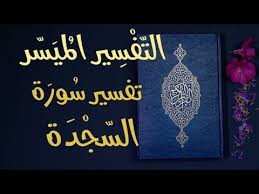 التَّفْسِير المُيَسَّر
تفسير سُورَة
السَّجْدَة